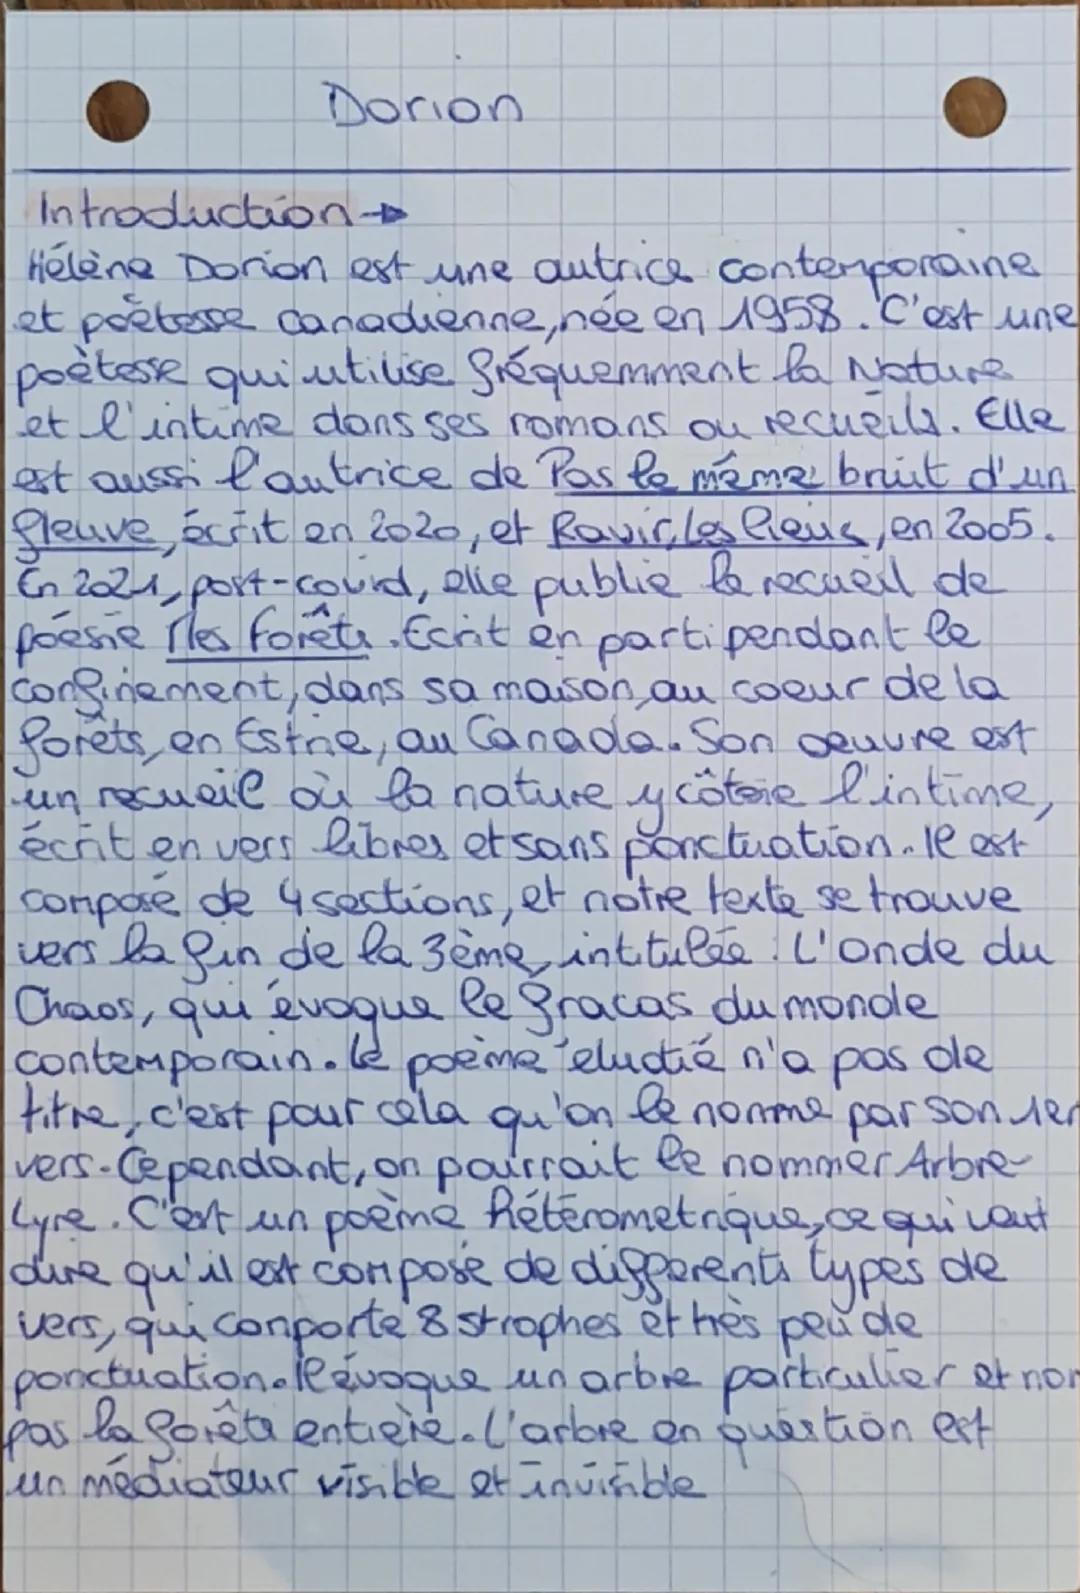 Dorion
Introduction →
Hélène Dorion est une autrice contemporaine
et poètesse canadienne, née en 1958. C'est une
poètesse qui utilise fréquemment la Nature
et l'intime dans ses romans ou recueils. Elle
est aussi l'autrice de Pas le même bruit d'un
fleuve, écrit en 2020, et Ravir, les lieux, en 2005.
En 2021, post-covid, elle publie le recueil de
poésie Mes forêts. Ecrit en parti pendant le
confinement, dans sa maison, au coeur de la
forêts, en Estrie, au Canada. Son oeuvre est
un recueil où la nature y côtoie l'intime,
écrit en vers libres et sans ponctuation. Il est
composé de 4 sections, et notre texte se trouve
vers la fin de la 3ème, intitulée : L'onde du
Chaos, qui évoque le fracas du monde
contemporain. Le poème éludié n'a pas de
titre, c'est pour cela qu'on le nomme par son 1er
vers. Cependant, on pourrait le nommer Arbre-
Lyre. C'est un poème hétérometrique, ce qui veut
dire qu'il est composé de différents types de
vers, qui comporte 8 strophes et très peu de
ponctuation. Il évoque un arbre particulier et non
pas la forêts entière. L'arbre en question est
un médiateur visible et invisible